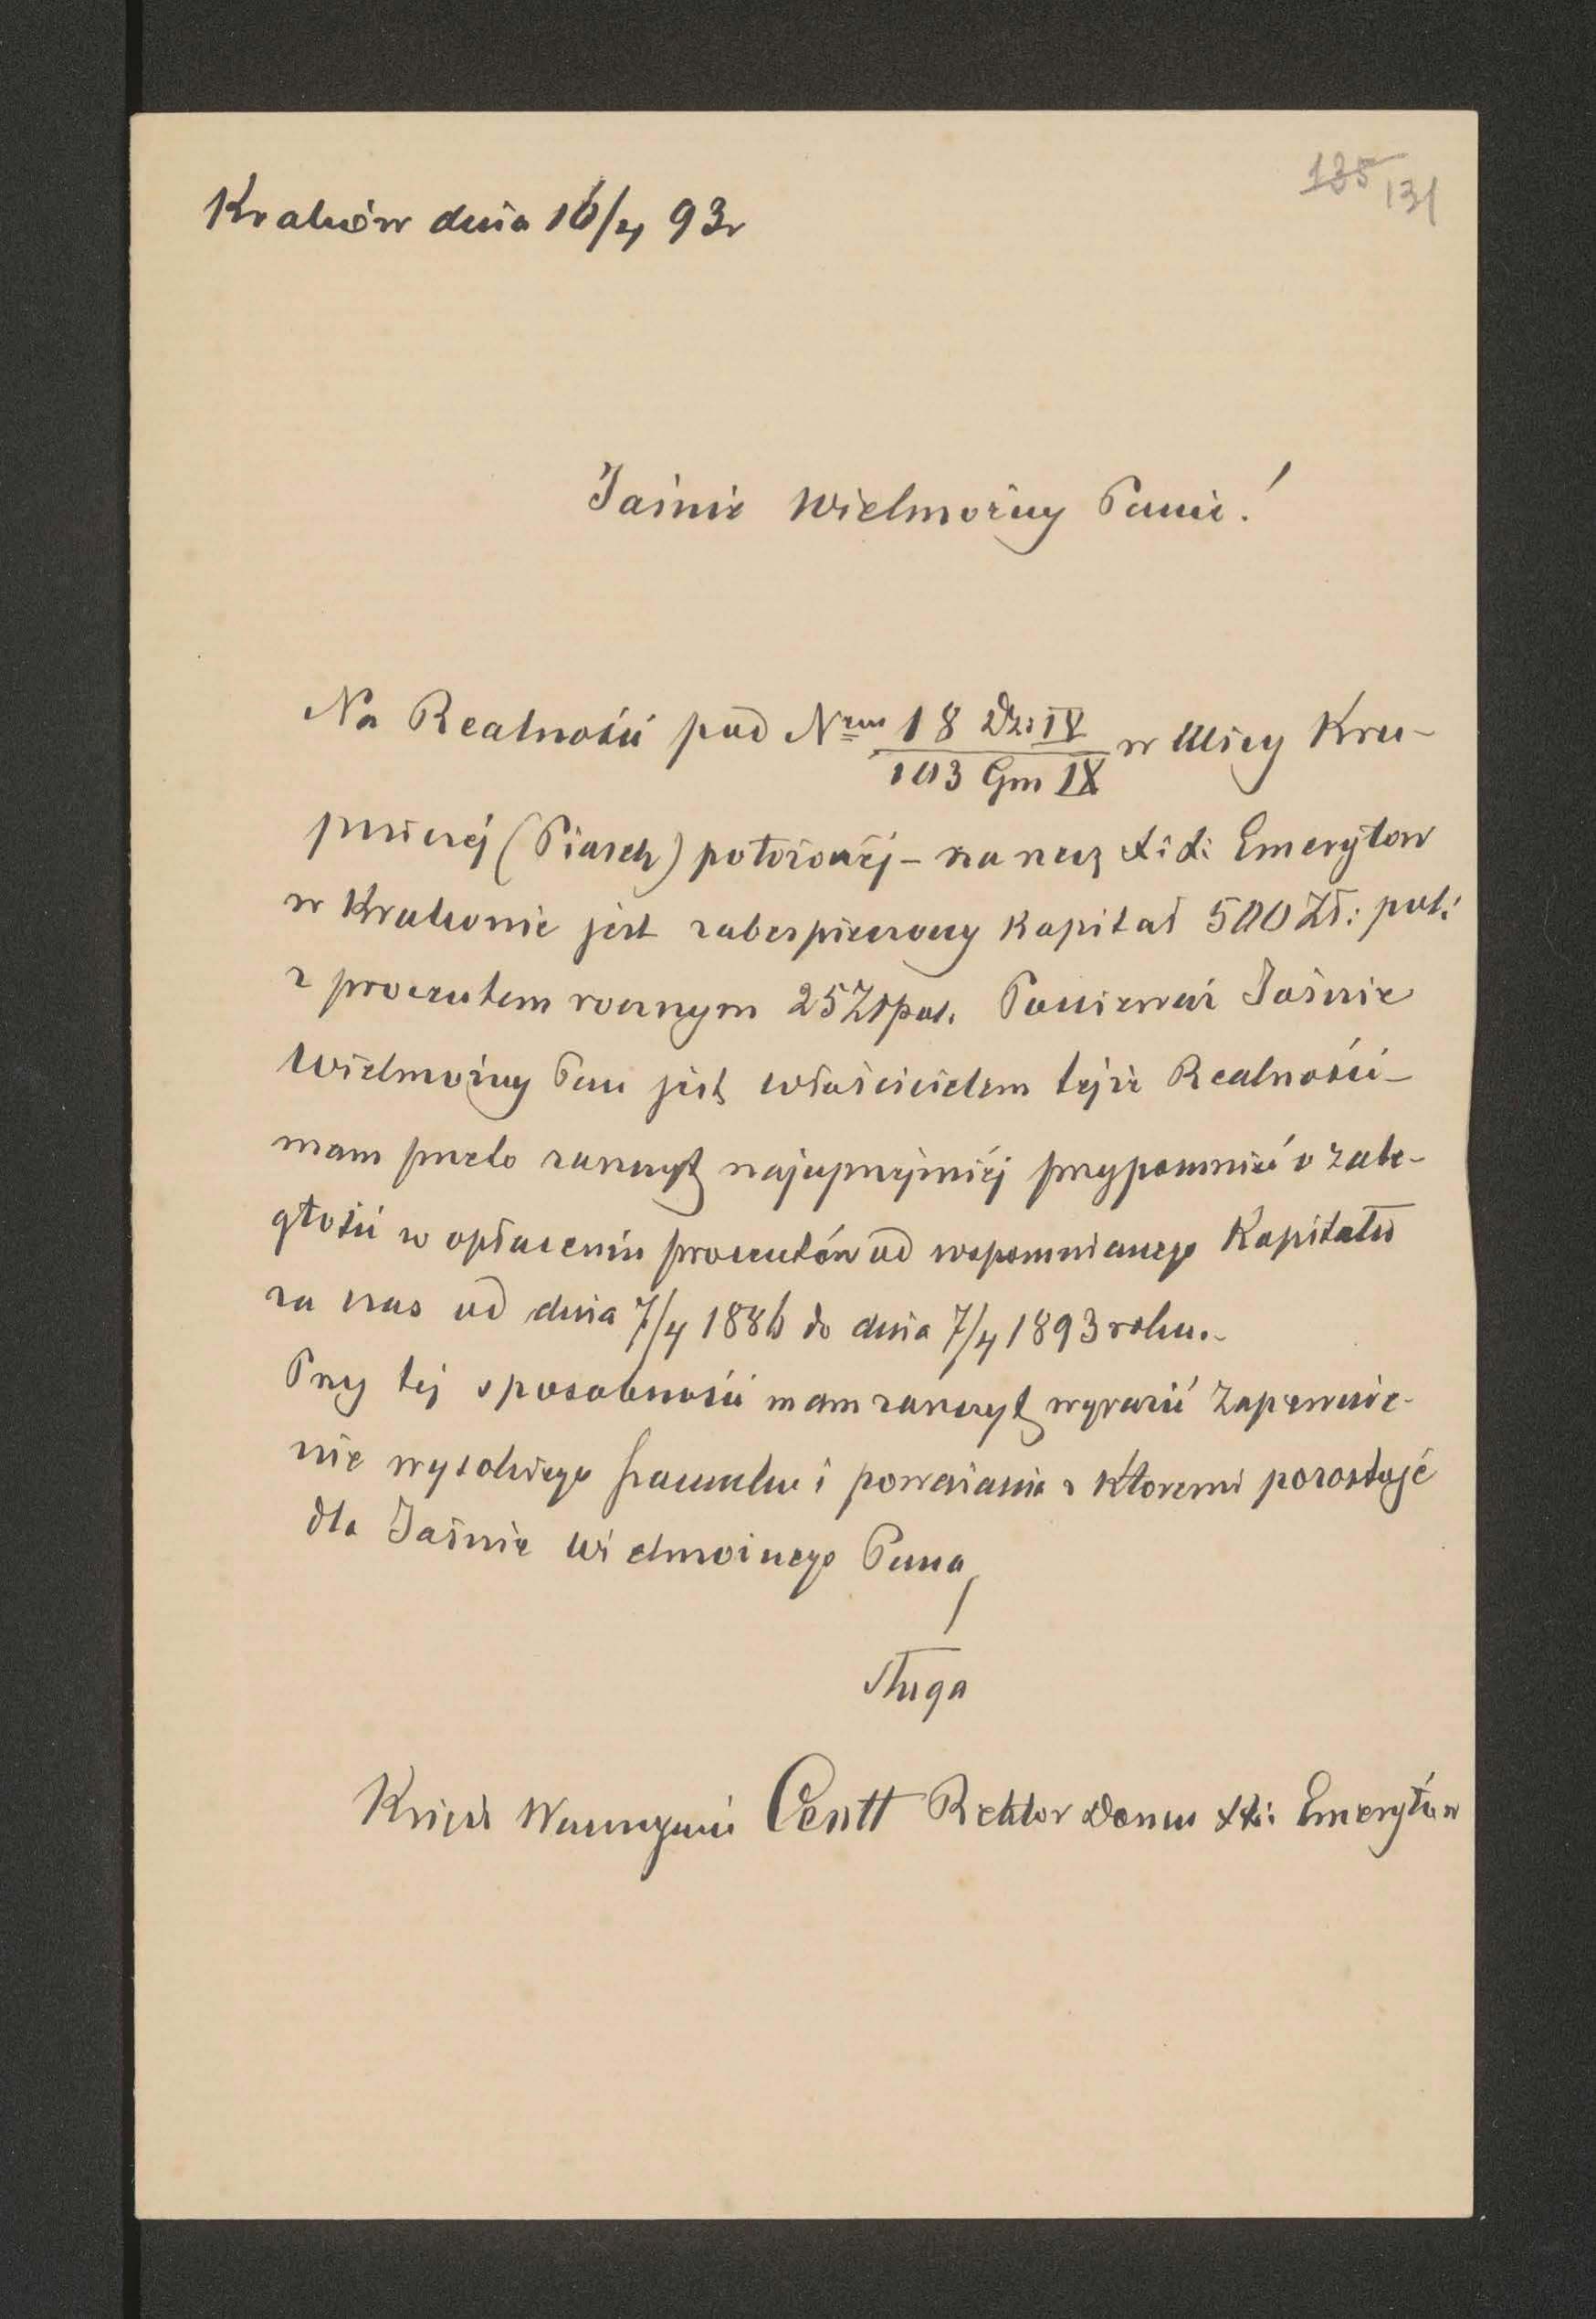 135 131
Kraków dnia 16/4 93r
Jaśnie Wielmożny Panie!
Na Realności pod Nrem 18 Dz: IV w Ulicy Kru-
103 Gm IX
pniczéj (Piasek) położonéj – na rzecz XiX: Emerytow
w Krakowie jest zabespieczony Kapitał 500 Zł: pol:
z procentem rocznym 25 Złpol. Ponieważ Jaśnie
Wielmożny Pan jest właścicielem tejże Realności –
mam przeto zaszczyt najuprzejmiéj przypomnieć o zale-
głości w opłaceniu procentów od wspomnianego Kapitału
za czas od dnia 7/4 1886 do dnia 7/4 1893 roku. –
Przy tej sposobności mam zaszczyt wyrazić Zapewnie-
nie wysokiego szacunku i poważania z Ktoremi pozostaję
dla Jaśnie Wielmożnego Pana
sługa
Ksiądz Wawrzyniec Centt Rektor Domu XX: Emerytów